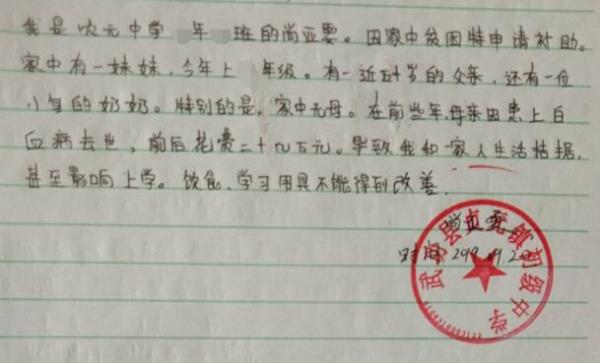 我是次元中学 年 班的尚亚雯。因家中贫困特申请补助。
家中有一妹妹，今年上 年级。有一近五十岁的父亲，还有一位
八旬的奶奶。特别的是，家中无母。在前些年，母亲因患上白
血病去世，前后花费二十几万元。导致我和一家人生活拮据，
甚至影响上学。饮食、学习用具不能得到改善.
尚亚雯
时间 2019.9.2
武 县 镇初级中学